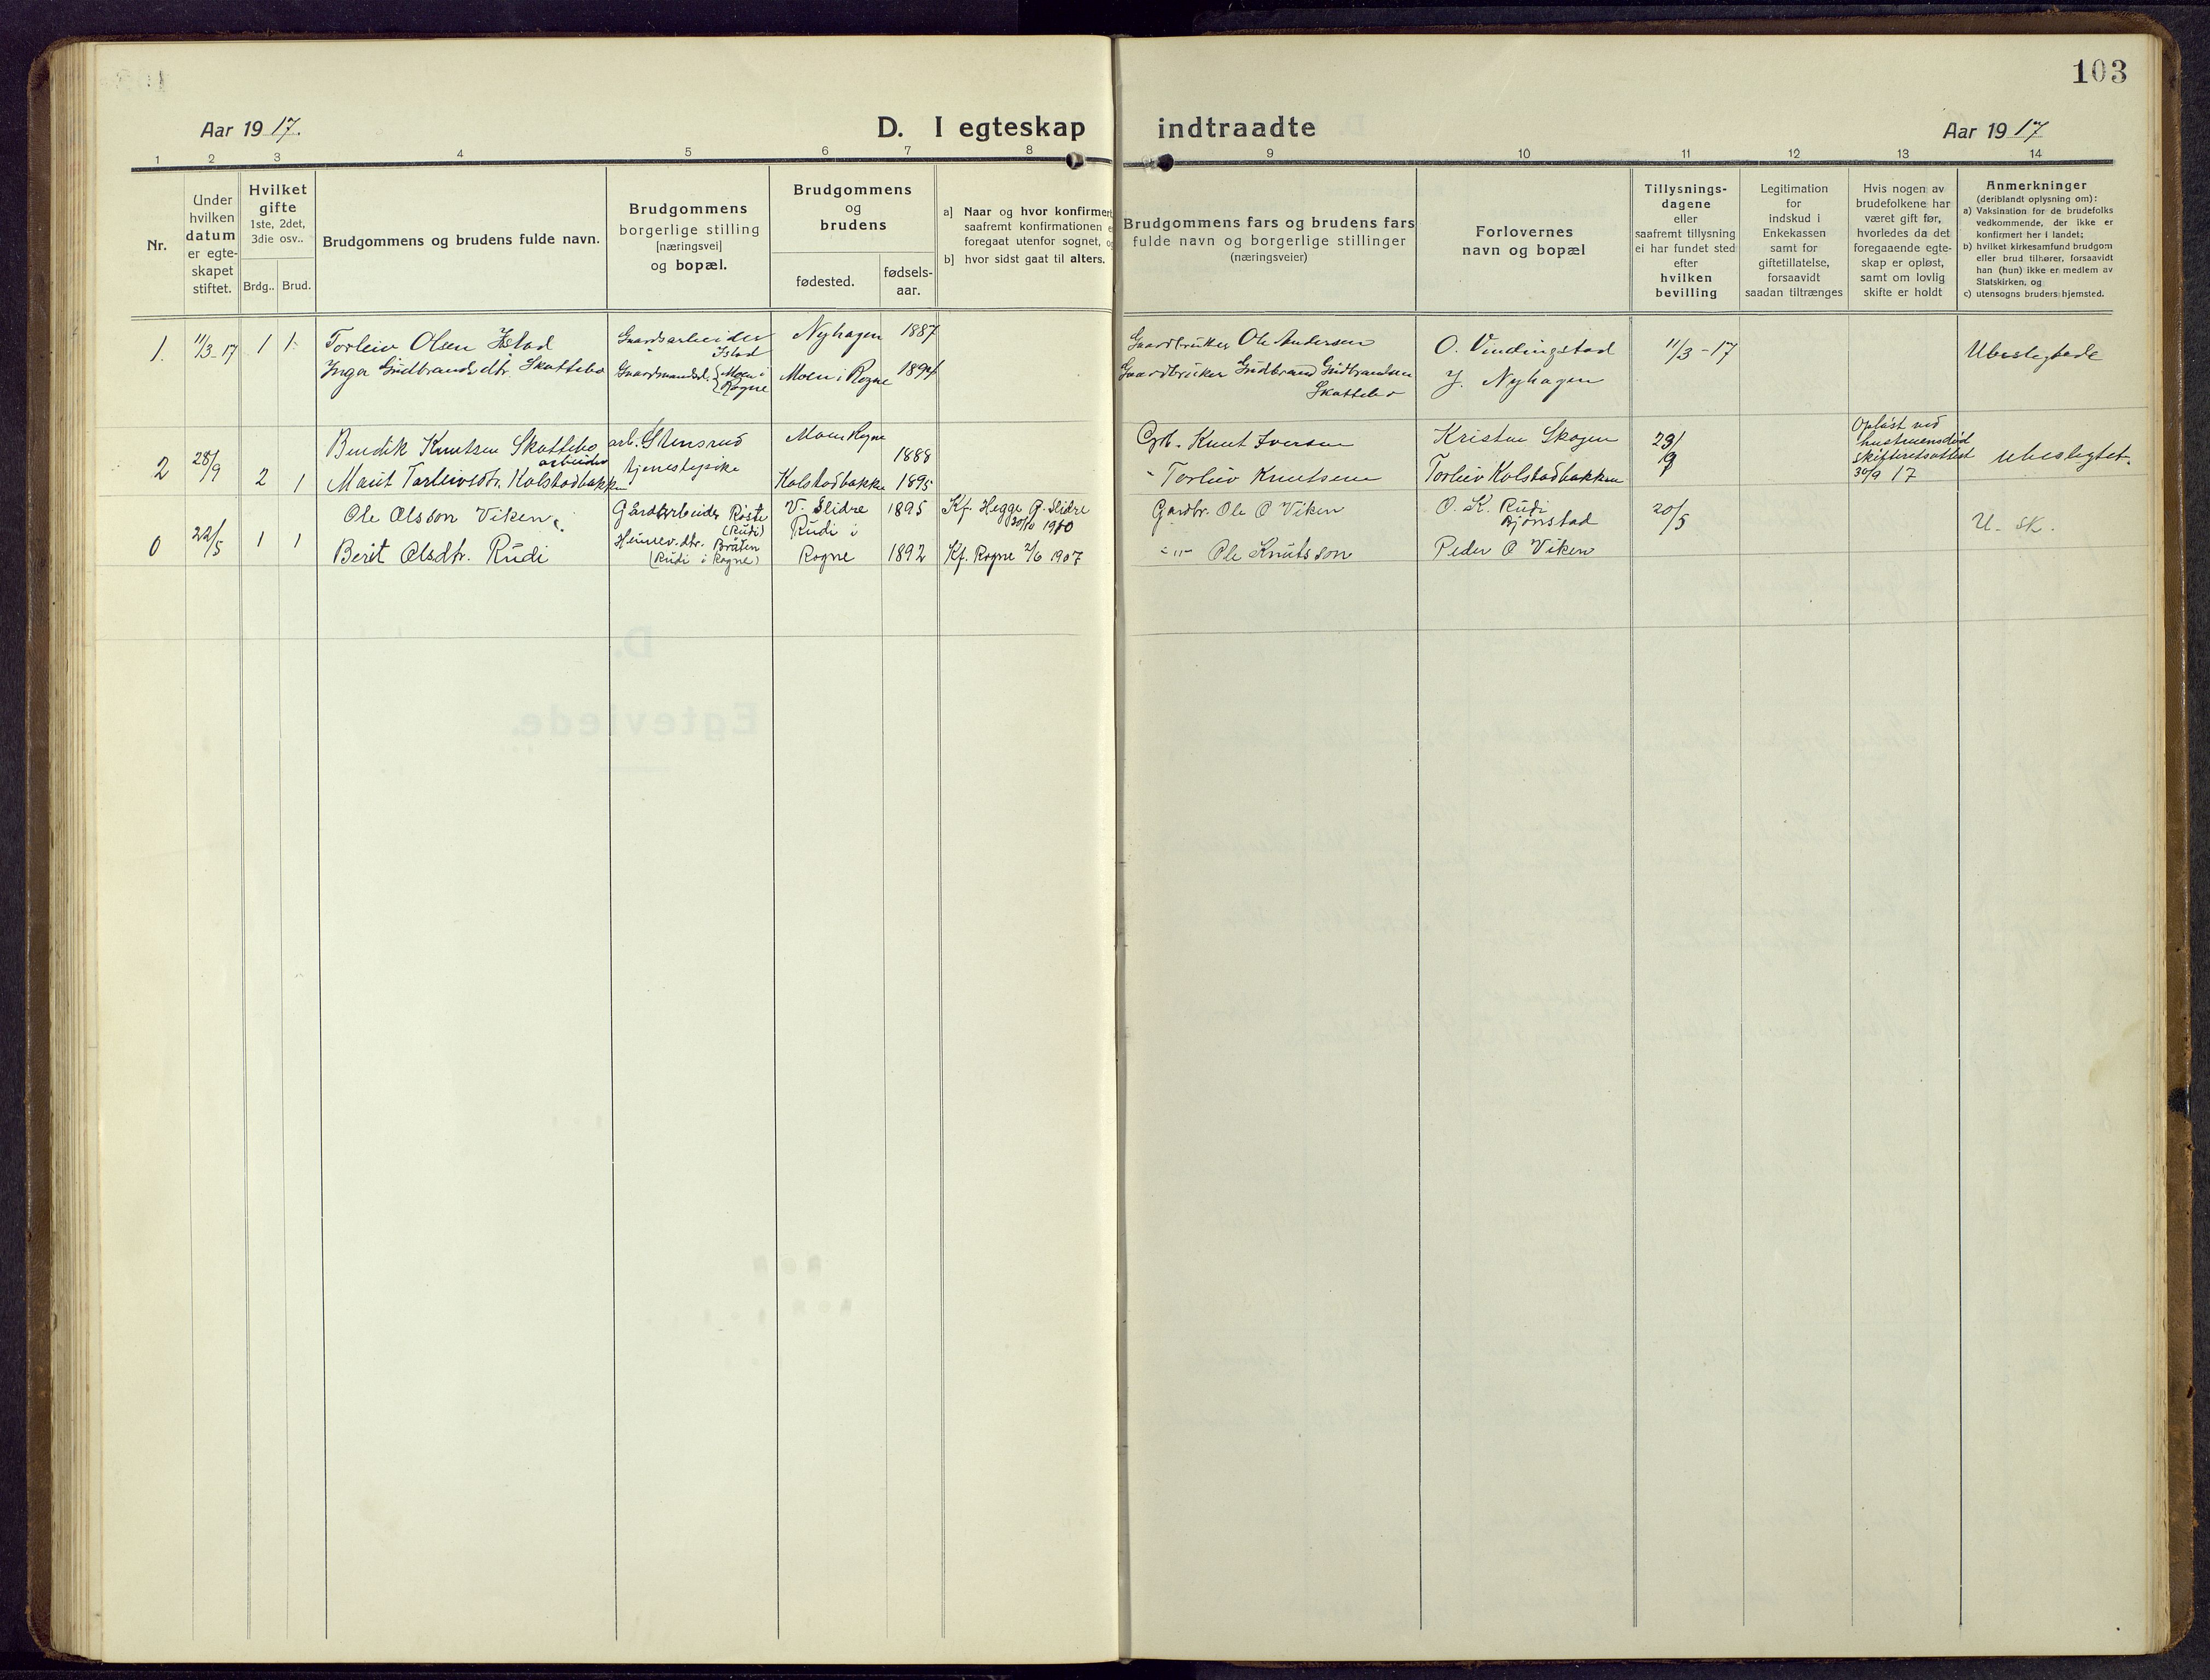 103
Aar 1917.
D. I egteskap indtraadte
Aar 1917
1 2 3 4 5 6 7 8 9 10 11 12 13 14
Nr.
Under
hvilken
datum
er egte-
skapet
stiftet.
Hvilket
gifte
1ste, 2det,
3die osv..
Brdg.. Brud.
Brudgommens og brudens fulde navn.
Brudgommens
borgerlige stilling
[næringsvei]
og bopæl.
Brudgommens
og
brudens
fødested.
fødsels-
aar.
a] Naar og hvor konfirmert
saafremt konfirmationen e
foregaat utenfor sognet, o
b] hvor sidst gaat til alters.
Brudgommens fars og brudens fars
fulde navn og borgerlige stillinger
(næringsveier)
Forlovernes
navn og bopæl
Tillysnings-
dagene
eller
saafremt tillysning
ei har fundet sted
efter
hvilken
bevilling
Legitimation
for
indskud i
Enkekassen
samt for
giftetillatelse,
forsaavidt
saadan tiltrænges
Hvis nogen av
brudefolkene har
været gift før,
hvorledes da det
foregaaende egte-
skap er opløst,
samt om lovlig
skifte er holdt
Anmerkninger
(deriblandt oplysning om):
a) Vaksination for de brudefolks
vedkommende, der ikke er
konfirmert her i landet;
b) hvilket kirkesamfund brudgom
eller brud tilhører, forsaavidt
han (hun) ikke er medlem av
Statskirken, og
c) utensogns bruders hjemsted.
1. 11/3-17 1 1
Torleiv Olsen Istad
Gaardsarbeider
Istad
Nyhagen 1887
Gaardbruker Ole Andersen
O. Vindingstad
11/3-17
Ubeslegtede
Inga Gudbrandsdtr. Skattebo
Gaardmandsd. (Moen i
Rogne
Moen i Rogne 1894
Gaardbruker Gudbrand Gudbrandsen
Skattebo
J. Nyhagen
2 28/9 2 1
Bendik Knutsen Skattebo
arbeider
arb. Stensrud
Moen Rogne
1888
Gbr. Knut Iversen
Kristen Skogen
29/9
Opløst ved
hustruens død
Skifteretsattest
30/9 17
Ubeslegtet.
Marit Torleivsdtr. Kolstadbakken
tjenestepike
Kolstadbakke 1895
" Torleiv Knutsen
Torleiv Kolstadbakken
0 22/5 1 1
Ole Olsson Viken
Gårdarbeider Røste
(Rudi)
V. Slidre 1895
Kf. Hegge Ø. Slidre
1910
Gardbr. Ole O Viken
O. K. Rudi
Bjønstad
20/5
U. sk.
Berit Olsdtr. Rudi
Heimev.dtr. Bråten
(Rudi i Rogne)
Rudi i
Rogne 1892
Kf. Rogne 2/6 1907
-"- Ole Knutsson
Peder O Viken